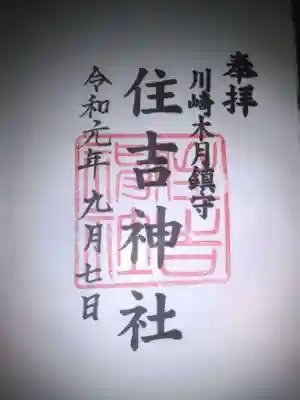 奉拝
川崎木月鎮守
住吉神社
令和元年九月七日